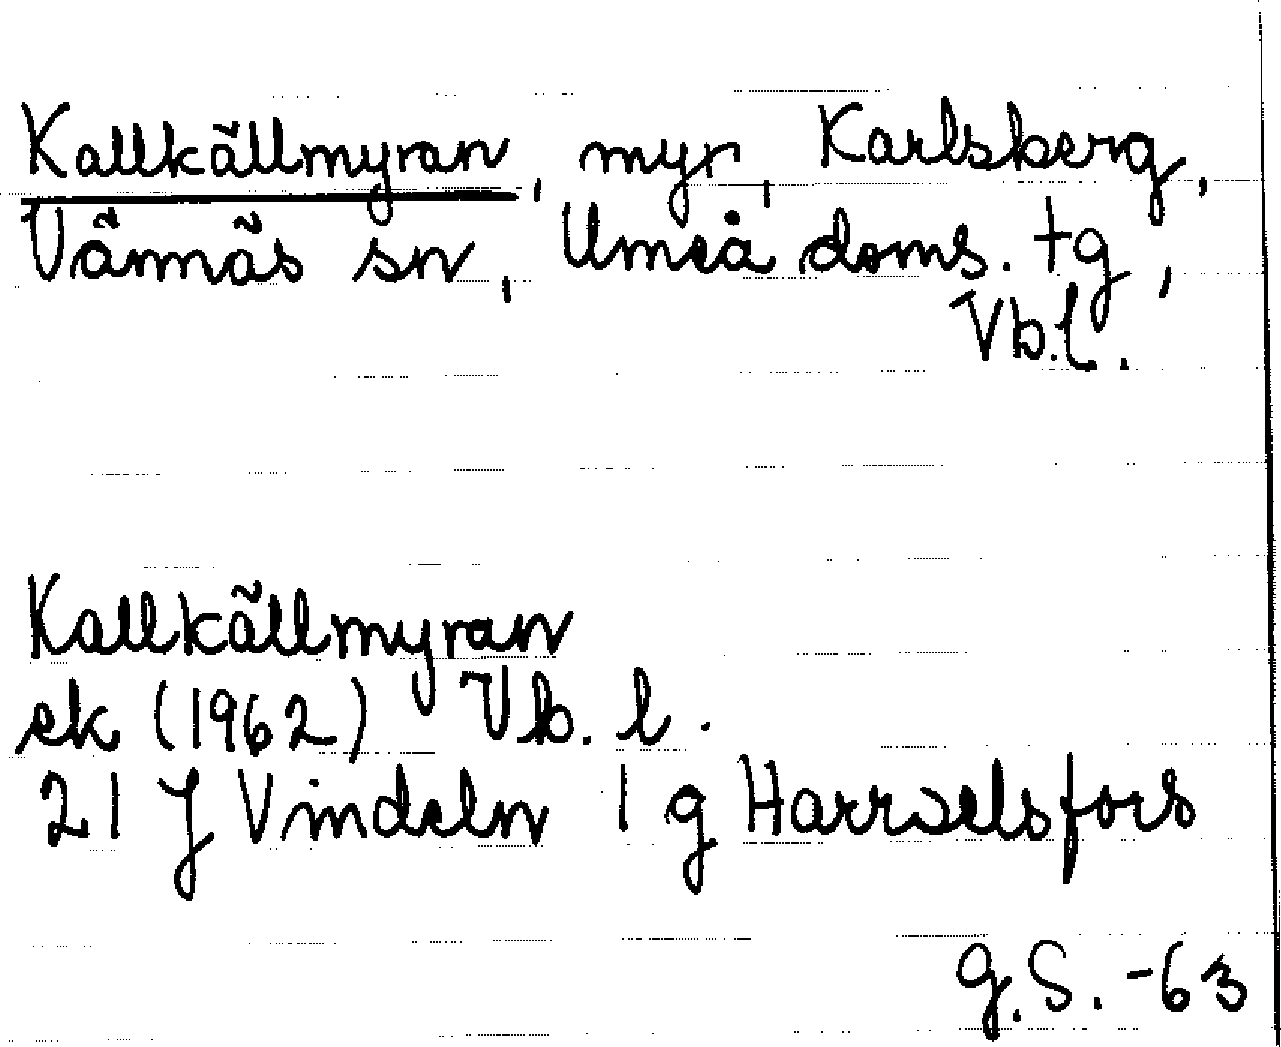 Kallkällmyran, myr, Karlsberg,
Vännäs sn, Umeå doms. tg,
Vb.l.
Kallkällmyran
ek (1962) Vb. l.
21 J Vindeln 1 g Harrselsfors
G.S. -63